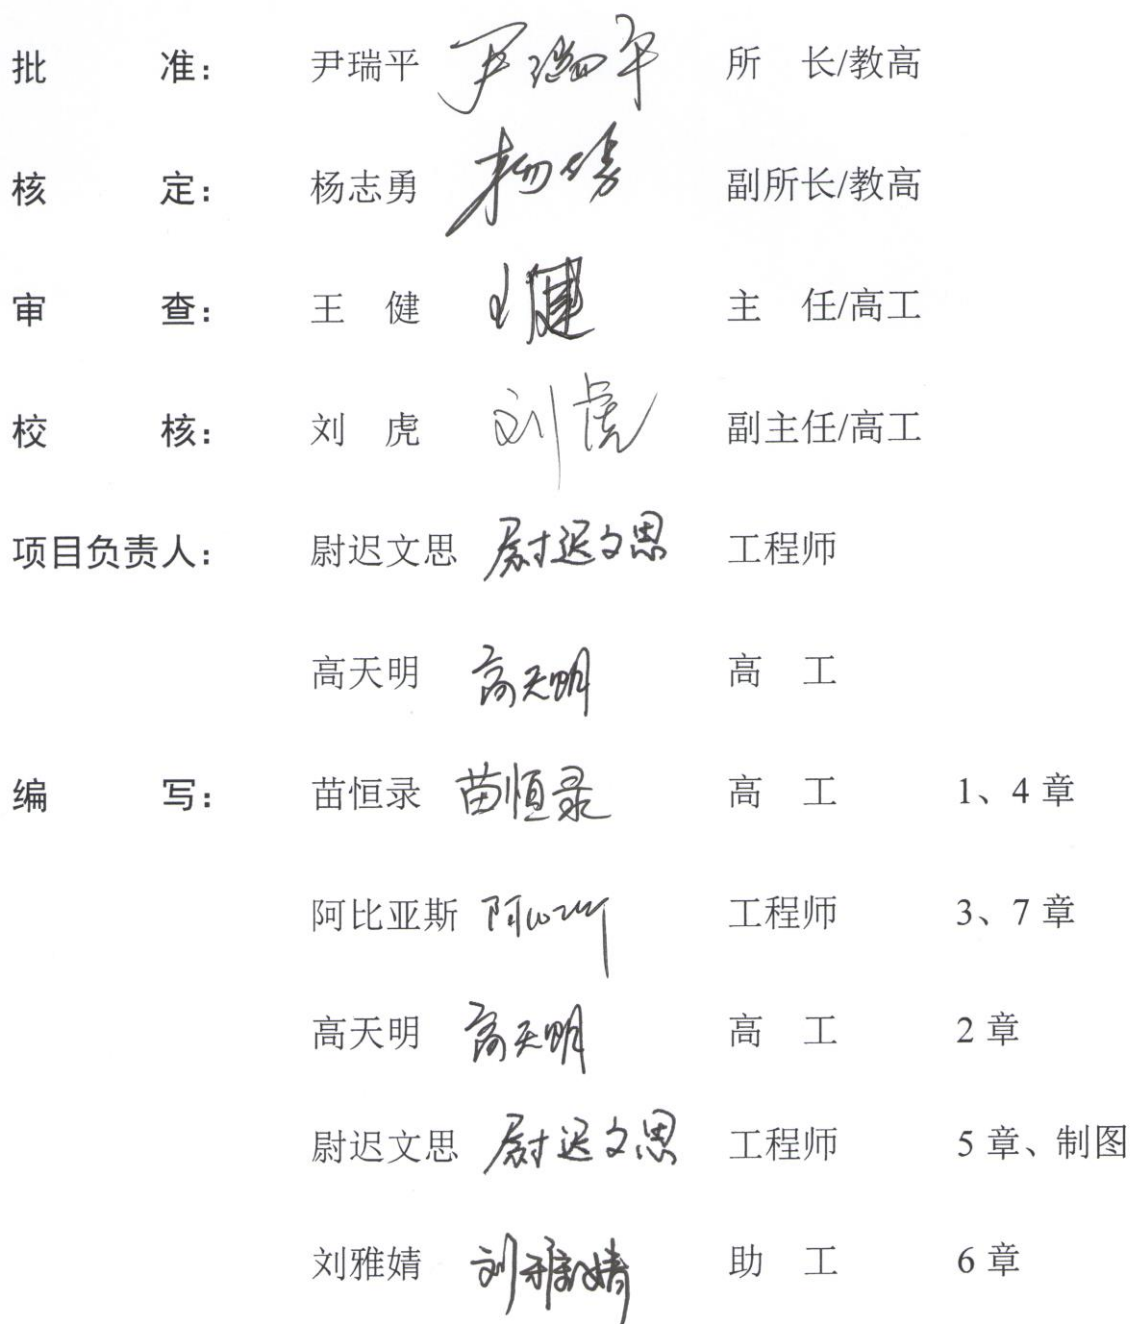 批 准： 尹瑞平 尹瑞平 所 长/教高
核 定： 杨志勇 杨志勇 副所长/教高
审 查： 王 健 王健 主 任/高工
校 核： 刘 虎 刘虎 副主任/高工
项目负责人： 尉迟文思 尉迟文思 工程师
高天明 高天明 高 工
编 写： 苗恒录 苗恒录 高 工 1、4 章
阿比亚斯 阿比亚斯 工程师 3、7 章
高天明 高天明 高 工 2 章
尉迟文思 尉迟文思 工程师 5 章、制图
刘雅婧 刘雅婧 助 工 6 章